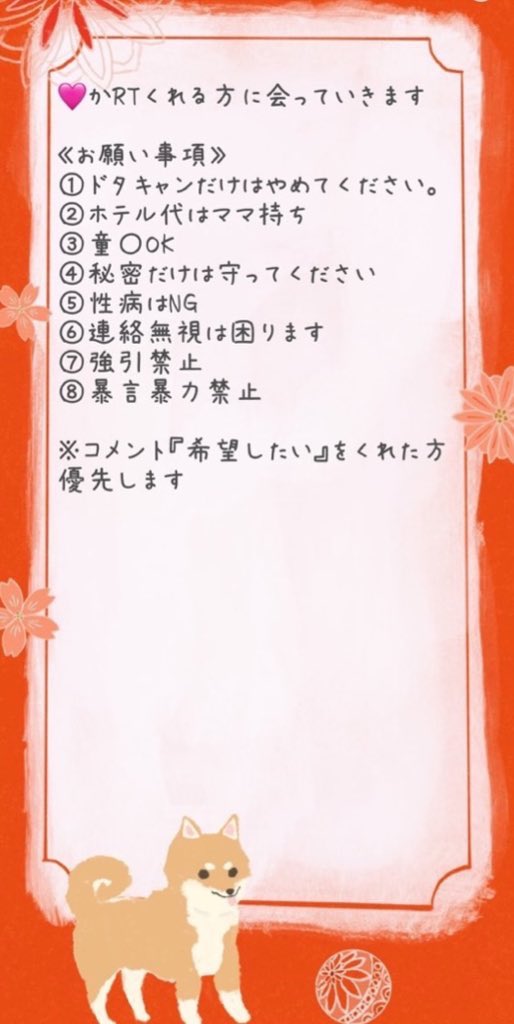 🩷かRTくれる方に会っていきます
≪お願い事項≫
①ドタキャンだけはやめてください。
②ホテル代はママ持ち
③童〇OK
④秘密だけは守ってください
⑤性病はNG
⑥連絡無視は困ります
⑦強引禁止
⑧暴言暴力禁止
※コメント『希望したい』をくれた方
優先します